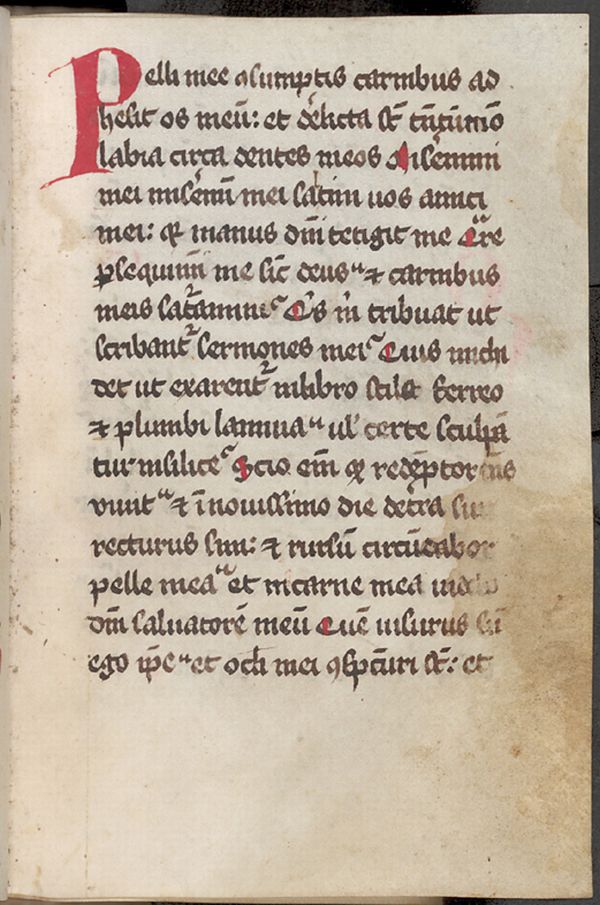 Pelli mee ꝯsumptis carnibus ad
hesit os meū: et đelicta st̄ tātūmō
labia circa dentes meos Misemini
mei misemini mei saltim uos amici
mei: qr manus dn̄i tetigit me Qͣre
ꝑsequimini me sic̄ deus ⁊ carnibus
meis satᷓamini Qis m̄ tribuat ut
scribantᷣ sermones mei Quis michi
det ut exarentᷣ in libro stilo ferreo
⁊ plumbi lamina ul' certe sculpā
tur in silice Scio em̄ qr redēptor meus
viuit ⁊ ī nouissimo die de tr̄a sur
recturus sum: ⁊ rursū circūdabor
pelle mea et in carne mea uidebo
dm̄ saluatorē meū Quē uisurus sū
ego ip̄e et oc̄li mei ꝯspc̄turi st̄: et